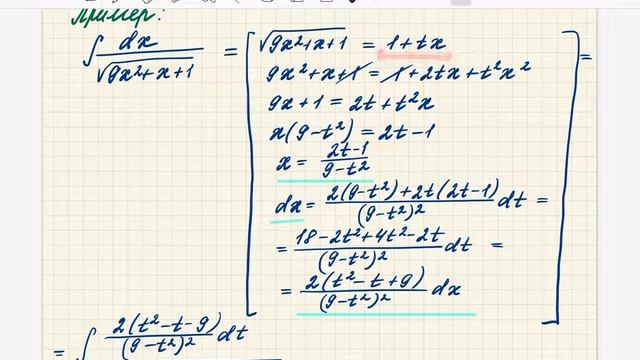 Пример:
∫ dx/√(9x²+x+1) = [ √(9x²+x+1) = 1+tx
9x²+x+1 = 1+2tx+t²x²
9x+1 = 2t+t²x
x(9-t²) = 2t-1
x = (2t-1)/(9-t²)
dx = (2(9-t²)+2t(2t-1))/(9-t²)² dt =
= (18-2t²+4t²-2t)/(9-t²)² dt =
= 2(t²-t+9)/(9-t²)² dx ] =
= ∫ 2(t²-t-9)/(9-t²)² dt